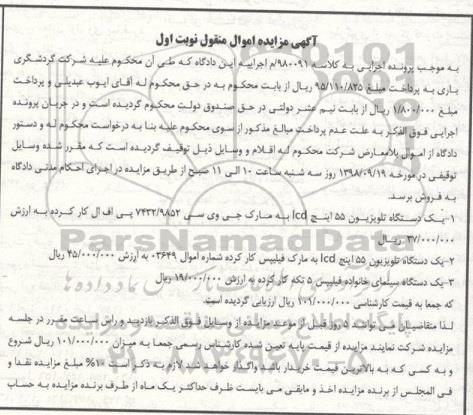 آگهی مزایده اموال منقول نوبت اول
به موجب پرونده اجرایی به کلاسه ۹۸۰۰۹۱/م اجراییه این دادگاه که طی آن محکوم علیه شرکت گردشگری
باری به پرداخت مبلغ ۹۵/۱۱۰/۸۲۵ ریال از بابت محکوم به در حق محکوم له آقای ایوب عبدیلی و پرداخت
مبلغ ۱/۸۰۰/۰۰۰ ریال از بابت نیم عشر دولتی در حق صندوق دولت محکوم گردیده است و در جریان پرونده
اجرایی فوق الذکر به علت عدم پرداخت مبالغ مذکور از سوی محکوم علیه بنا به درخواست محکوم له و دستور
دادگاه از اموال بلامعارض شرکت محکوم له اقلام و وسایل ذیل توقیف گردیده است که مقرر شده وسایل
توقیفی در مورخه ۱۳۹۸/۰۹/۱۹ روز سه شنبه ساعت ۱۰ الی ۱۱ صبح از طریق مزایده در اجرای احکام مدنی دادگاه
به فروش برسد.
۱-یک دستگاه تلویزیون ۵۵ اینچ lcd به مارک جی وی سی ۷۴۳۲/۹۸۵۲ پی اف ال کار کرده به ارزش
۳۷/۰۰۰/۰۰۰ ریال
۲-یک دستگاه تلویزیون ۵۵ اینچ lcd به مارک فیلیپس کار کرده شماره اموال ۰۳۶۴۹ به ارزش ۴۵/۰۰۰/۰۰۰ ریال
۳-یک دستگاه سینمای خانواده فیلیپس ۵ تکه کار کرده به ارزش ۱۹/۰۰۰/۰۰۰ ریال
که جمعا به قیمت کارشناسی ۱۰۱/۰۰۰/۰۰۰ ریال ارزیابی گردیده است.
لذا متقاضیان می توانند ۵ روز قبل از موعد مزایده از وسایل فوق الذکر بازدید و راس ساعت مقرر در جلسه
مزایده شرکت نمایند مزایده از قیمت پایه تعین شده کارشناس رسمی جمعا به میزان ۱۰۱/۰۰۰/۰۰۰ ریال شروع
و به کسی که به بالاترین قیمت خریدار باشد واگذار خواهد شد لازم به ذکر است ۱۰% مبلغ مزایده نقدا و
فی المجلس از برنده مزایده اخذ و مابقی می بایست ظرف حداکثر یک ماه از طرف برنده مزایده به حساب
ParsNamadData